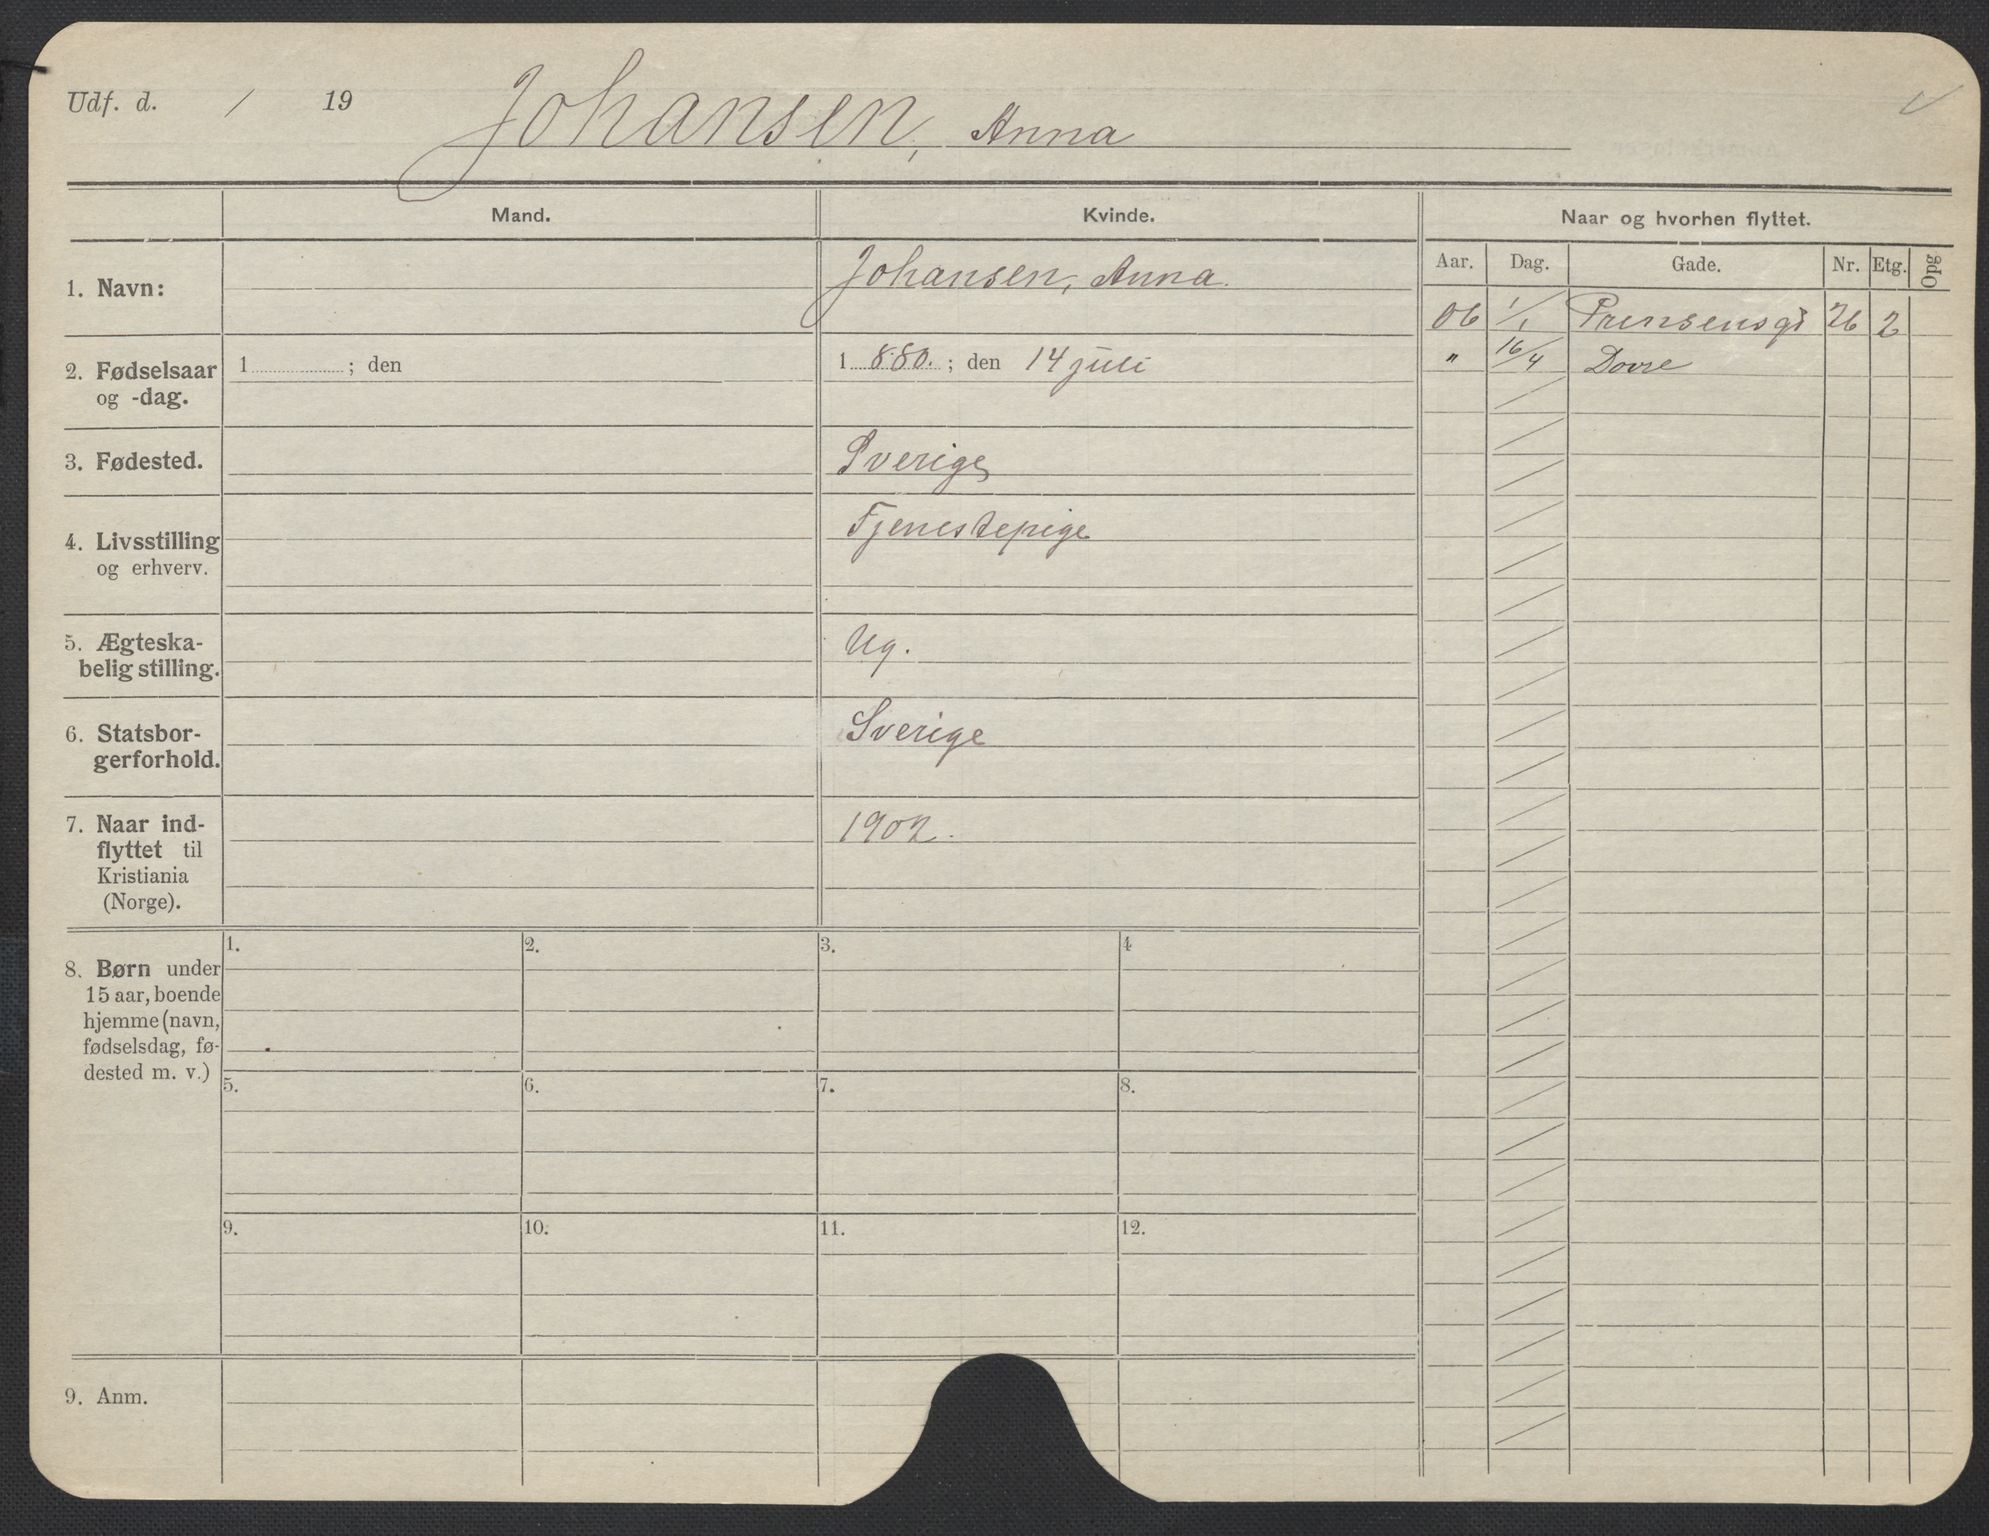 Udf. d. / 19 Johansen, Anna
Mand. Kvinde. Naar og hvorhen flyttet.
Aar. Dag. Gade. Nr. Etg. Opg
1. Navn: Johansen, Anna.
06 1/1 Prinsensgt 26 2
" 16/4 Dovre
2. Fødselsaar
og -dag.
1 ; den 1 880. ; den 14 juli
3. Fødested. Sverige
4. Livsstilling
og erhverv.
Tjenestepige
5. Ægteska-
belig stilling.
Ug.
6. Statsbor-
gerforhold.
Sverige
7. Naar ind-
flyttet til
Kristiania
(Norge).
1902.
8. Børn under
15 aar, boende
hjemme (navn,
fødselsdag, fø-
dested m. v.)
1. 2. 3. 4
5. 6. 7. 8.
9. 10. 11. 12.
9. Anm.